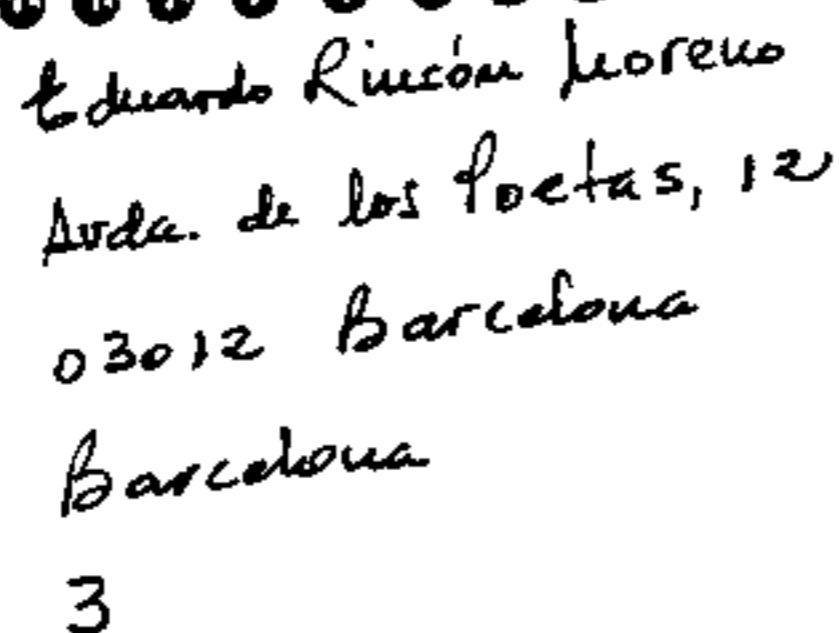 Eduardo Rincón Moreno
Avda. de los Poetas, 12
03012 Barcelona
Barcelona
3